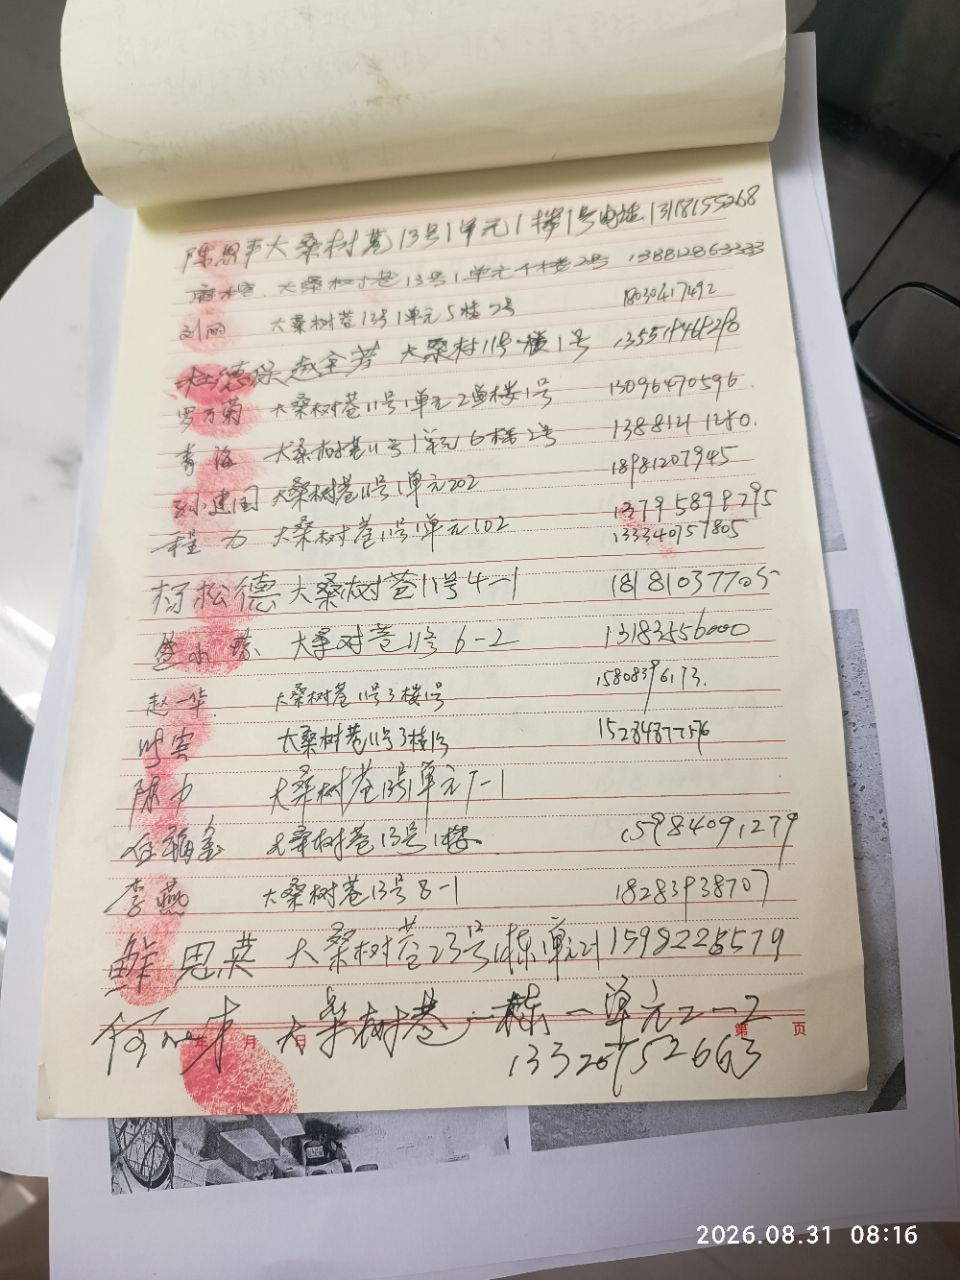 陈思 大桑树巷13号1单元1楼1号电话13181155268
大桑树巷13号1单元 楼2号 138812863333
刘丽 大桑树巷13号1单元5楼2号 18030417492
杜德 赵全芳 大桑树11号 楼1号
罗万菊 大桑树巷11号1单元2 楼1号 13096470596.
青海 大桑树巷11号1单元6楼2号
孙建国 大桑树巷11号1单元202 18981207945
程力 大桑树巷11号1单元102 13795898795
13340757805
杨松德 大桑树巷11号4-1 18181037705
大桑树巷11号6-2 13183456000
赵一华. 大桑树巷11号3楼1号 15808396173.
大桑树巷11号3楼1号 15284877576
陈力 大桑树巷13号1单元7-1
大桑树巷13号1楼 15984091279
李燕 大桑树巷13号8-1 18283938707
鲜思英 大桑树巷23号1栋1单元21 1598228579
何 大桑树巷一栋一单元2-2
13320752663
年 月 日 第 页
2026.08.31 08:16